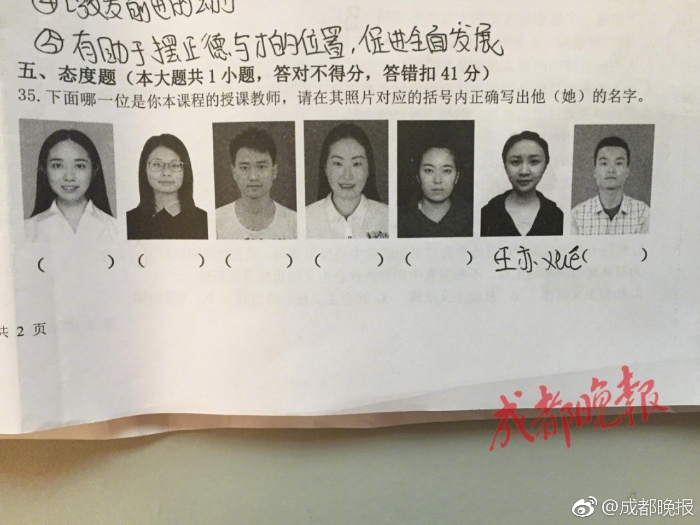 ④ 
⑤ 有助于摆正德与才的位置,促进全面发展
五、态度题(本大题共1小题,答对不得分,答错扣41分)
35.下面哪一位是你本课程的授课教师,请在其照片对应的括号内正确写出他(她)的名字。
( ) ( ) ( ) ( ) ( ) 王亦 ( )
共 2 页
成都晚报
@成都晚报